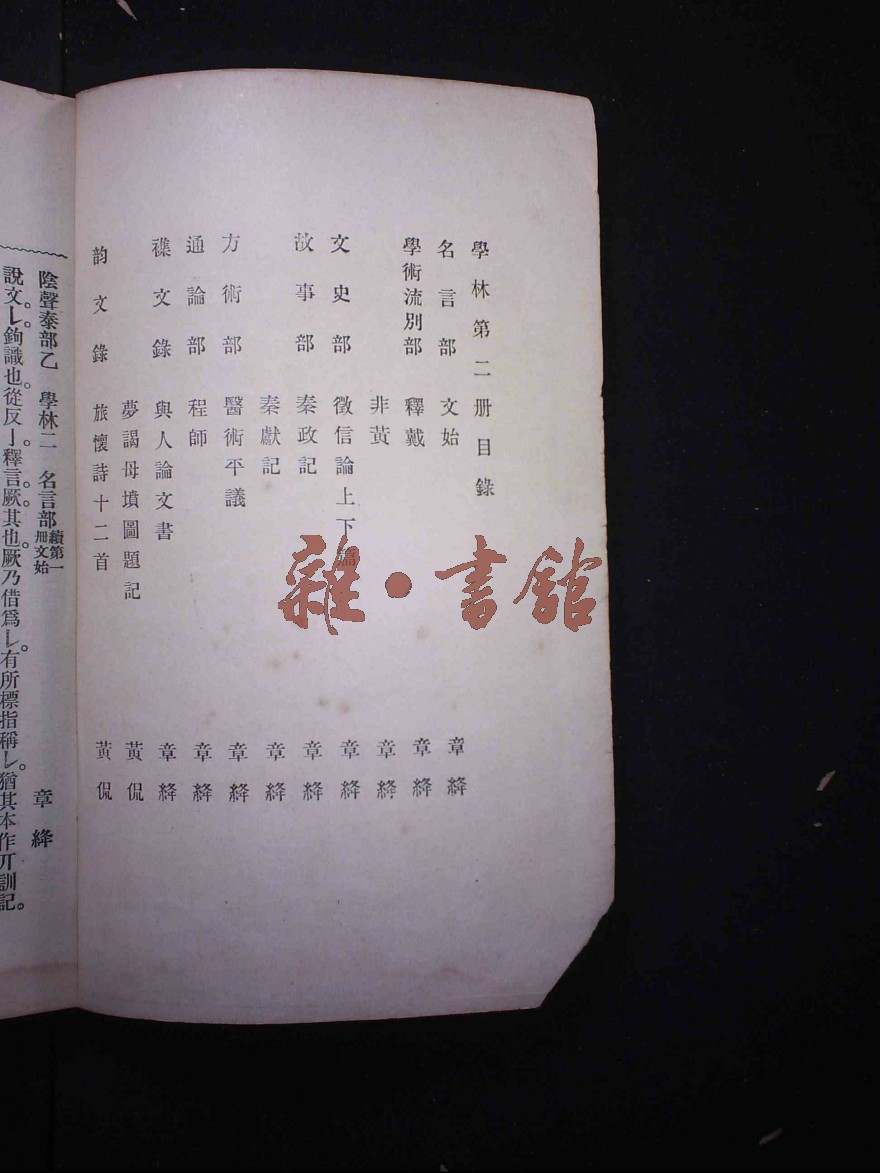 學林第二册目錄
名言部 文始 章絳
學術流別部 釋戴 章絳
非黃 章絳
文史部 徵信論上下篇 章絳
故事部 秦政記 章絳
秦獻記 章絳
方術部 醫術平議 章絳
通論部 程師 章絳
襍文錄 與人論文書 章絳
夢謁母墳圖題記 黃侃
韵文錄 旅懷詩十二首 黃侃
陰聲泰部乙 學林二 名言部 續第一册文始 章絳
說文。𠄌。鉤識也。從反亅。釋言。厥。其也。厥乃借爲𠄌。有所標指稱𠄌。猶其本作丌訓記。
雜·書館